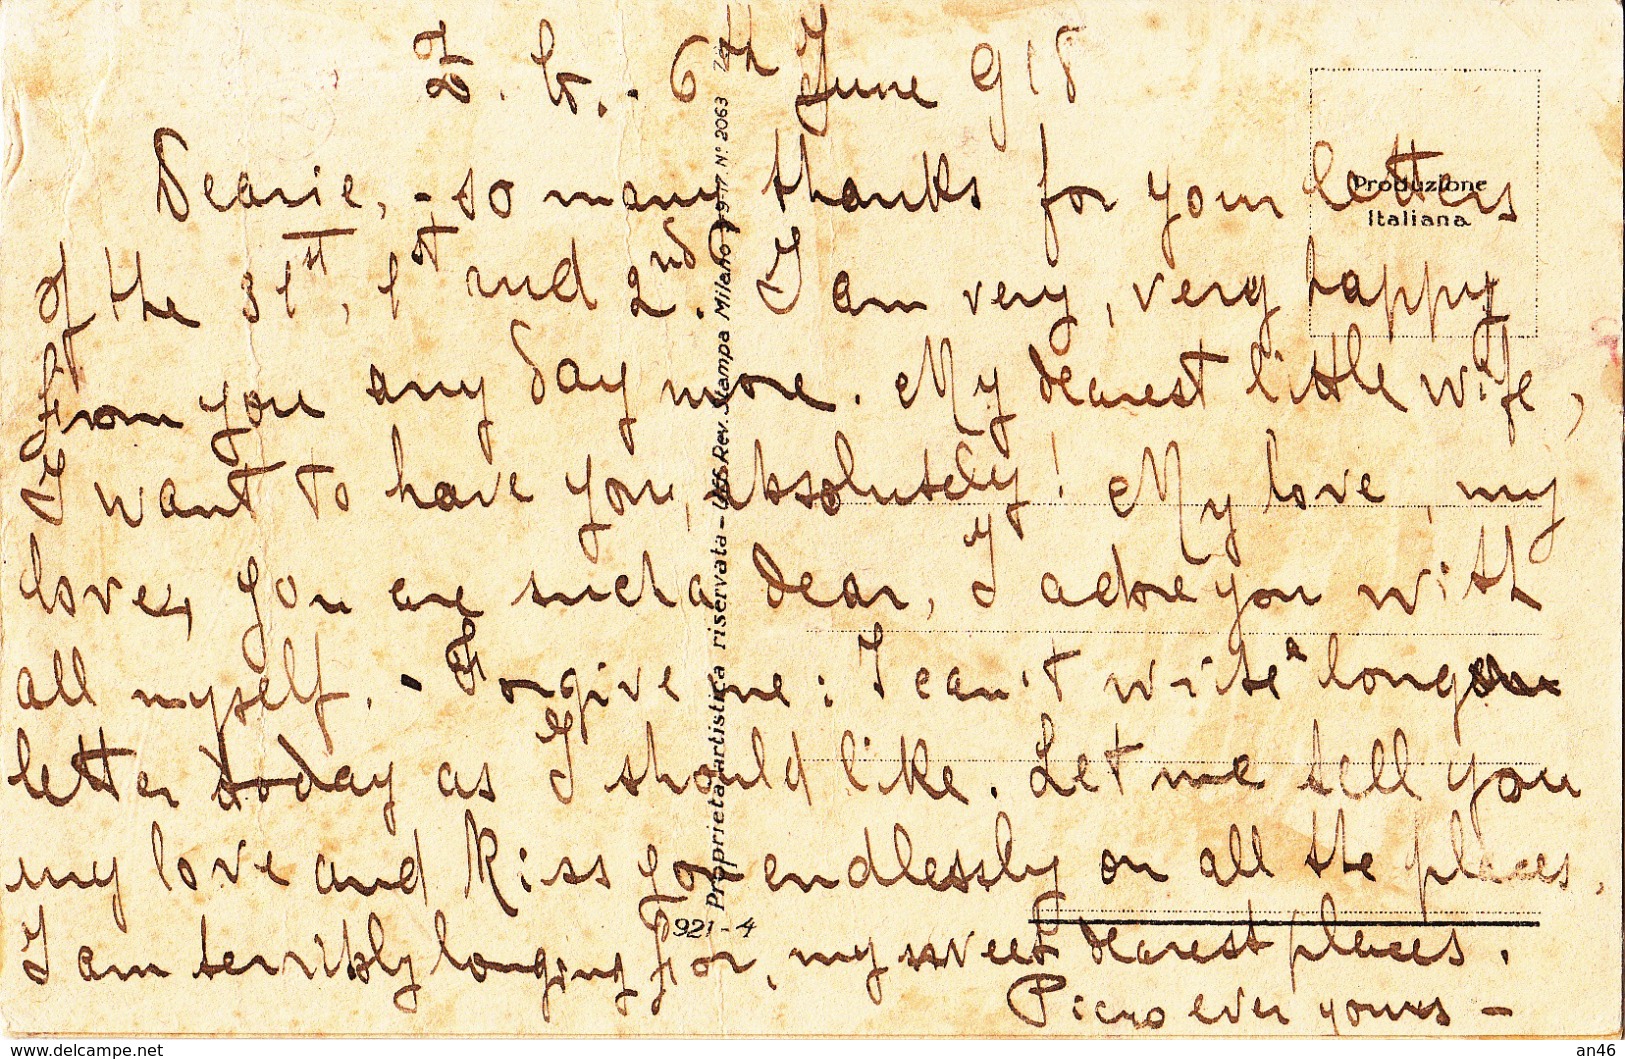 Z. G. - 6th June 918
Dearie, - so many thanks for your letters
of the 31st, 1st and 2nd. I am very, very happy
from you any day more. My dearest little wife,
I want to have you, absolutely! My love, my
love, you are such a dear, I adore you with
all myself. - Forgive me: I can't write a long
letter today as I should like. Let me tell you
my love and kiss you endlessly on all the places.
I am terribly longing for, my sweet dearest places.
Piero ever yours -
Produzione
Italiana
Proprietà artistica riservata - Uff. Rev. Stampa Milano 9-9-17 N. 2063
921 - 4
www.delcampe.net
an46